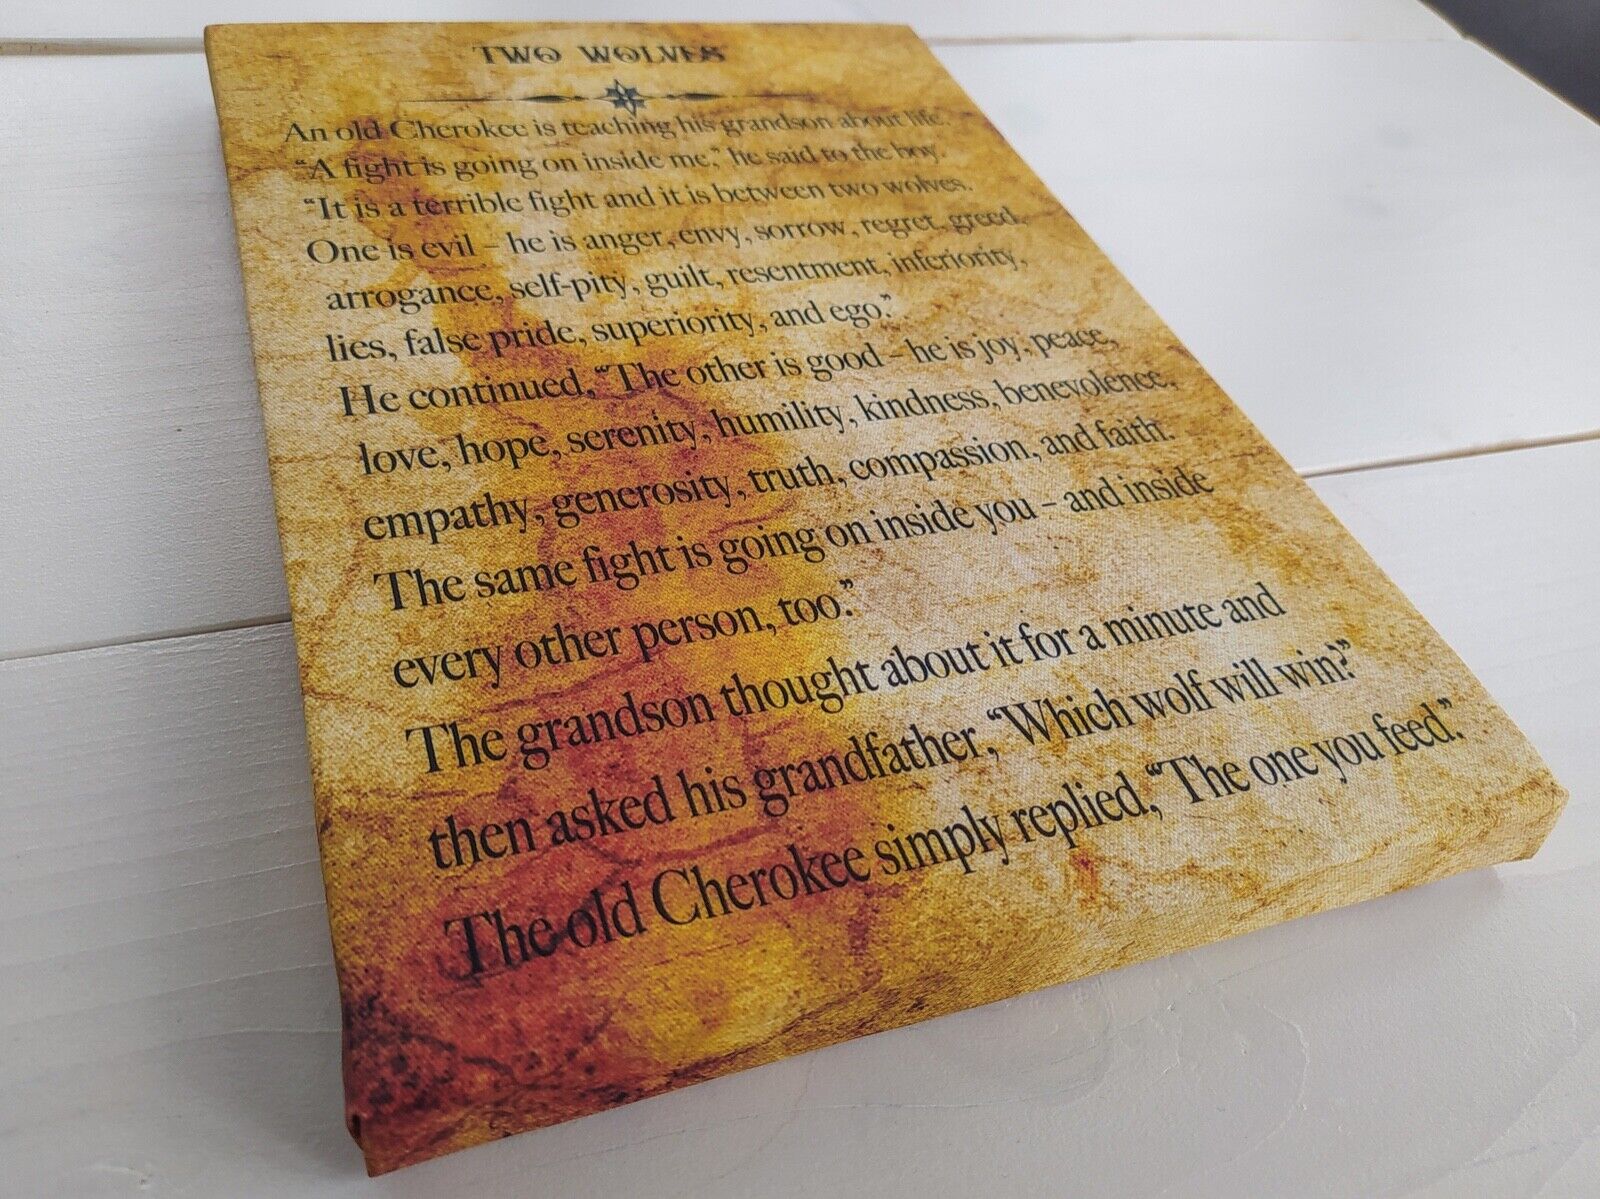 TWO WOLVES
An old Cherokee is teaching his grandson about life.
“A fight is going on inside me,” he said to the boy.
“It is a terrible fight and it is between two wolves.
One is evil – he is anger, envy, sorrow, regret, greed,
arrogance, self-pity, guilt, resentment, inferiority,
lies, false pride, superiority, and ego.”
He continued, “The other is good – he is joy, peace,
love, hope, serenity, humility, kindness, benevolence,
empathy, generosity, truth, compassion, and faith.
The same fight is going on inside you – and inside
every other person, too.”
The grandson thought about it for a minute and
then asked his grandfather, “Which wolf will win?”
The old Cherokee simply replied, “The one you feed”.